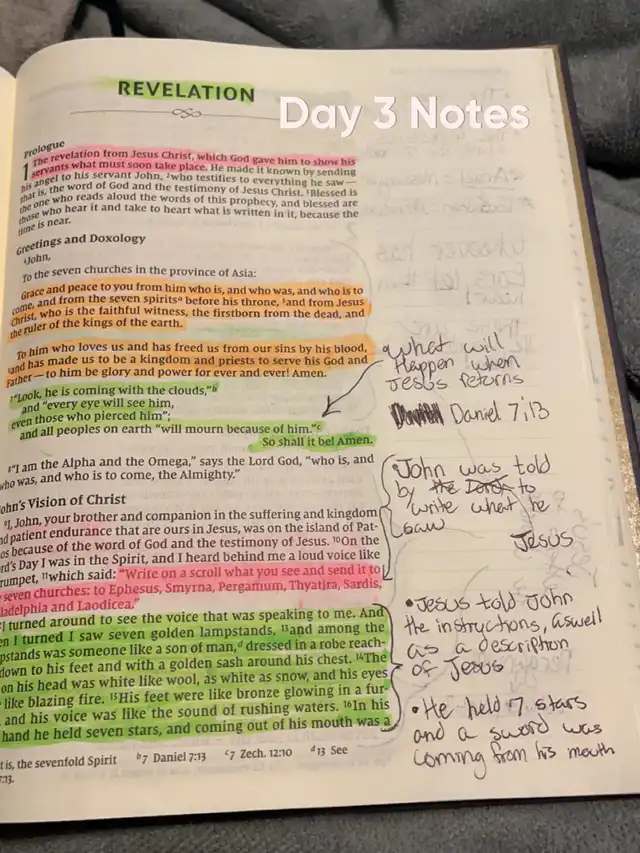 REVELATION
Day 3 Notes
Prologue
1 The revelation from Jesus Christ, which God gave him to show his
servants what must soon take place. He made it known by sending
his angel to his servant John, ²who testifies to everything he saw—
that is, the word of God and the testimony of Jesus Christ. ³Blessed is
the one who reads aloud the words of this prophecy, and blessed are
those who hear it and take to heart what is written in it, because the
time is near.
Greetings and Doxology
⁴John,
To the seven churches in the province of Asia:
Grace and peace to you from him who is, and who was, and who is to
come, and from the seven spiritsᵃ before his throne, ⁵and from Jesus
Christ, who is the faithful witness, the firstborn from the dead, and
the ruler of the kings of the earth.
To him who loves us and has freed us from our sins by his blood,
⁶and has made us to be a kingdom and priests to serve his God and
Father—to him be glory and power for ever and ever! Amen.
⁷"Look, he is coming with the clouds,"ᵇ
and "every eye will see him,
even those who pierced him";
and all peoples on earth "will mourn because of him."ᶜ
So shall it be! Amen.
⁸"I am the Alpha and the Omega," says the Lord God, "who is, and
who was, and who is to come, the Almighty."
ohn's Vision of Christ
⁹I, John, your brother and companion in the suffering and kingdom
nd patient endurance that are ours in Jesus, was on the island of Pat-
os because of the word of God and the testimony of Jesus. ¹⁰On the
rd's Day I was in the Spirit, and I heard behind me a loud voice like
rumpet, ¹¹which said: "Write on a scroll what you see and send it to
seven churches: to Ephesus, Smyrna, Pergamum, Thyatira, Sardis,
ladelphia and Laodicea."
I turned around to see the voice that was speaking to me. And
en I turned I saw seven golden lampstands, ¹³and among the
pstands was someone like a son of man,ᵈ dressed in a robe reach-
down to his feet and with a golden sash around his chest. ¹⁴The
on his head was white like wool, as white as snow, and his eyes
like blazing fire. ¹⁵His feet were like bronze glowing in a fur-
and his voice was like the sound of rushing waters. ¹⁶In his
hand he held seven stars, and coming out of his mouth was a
t is, the sevenfold Spirit ᵇ7 Daniel 7:13 ᶜ7 Zech. 12:10 ᵈ13 See
7:13.
•What will
Happen when
Jesus returns
Daniel 7:13
John was told
by the Lord to
write what he
saw
Jesus
•Jesus told John
the instructions, aswell
as a description
of Jesus
•He held 7 stars
and a sword was
coming from his mouth